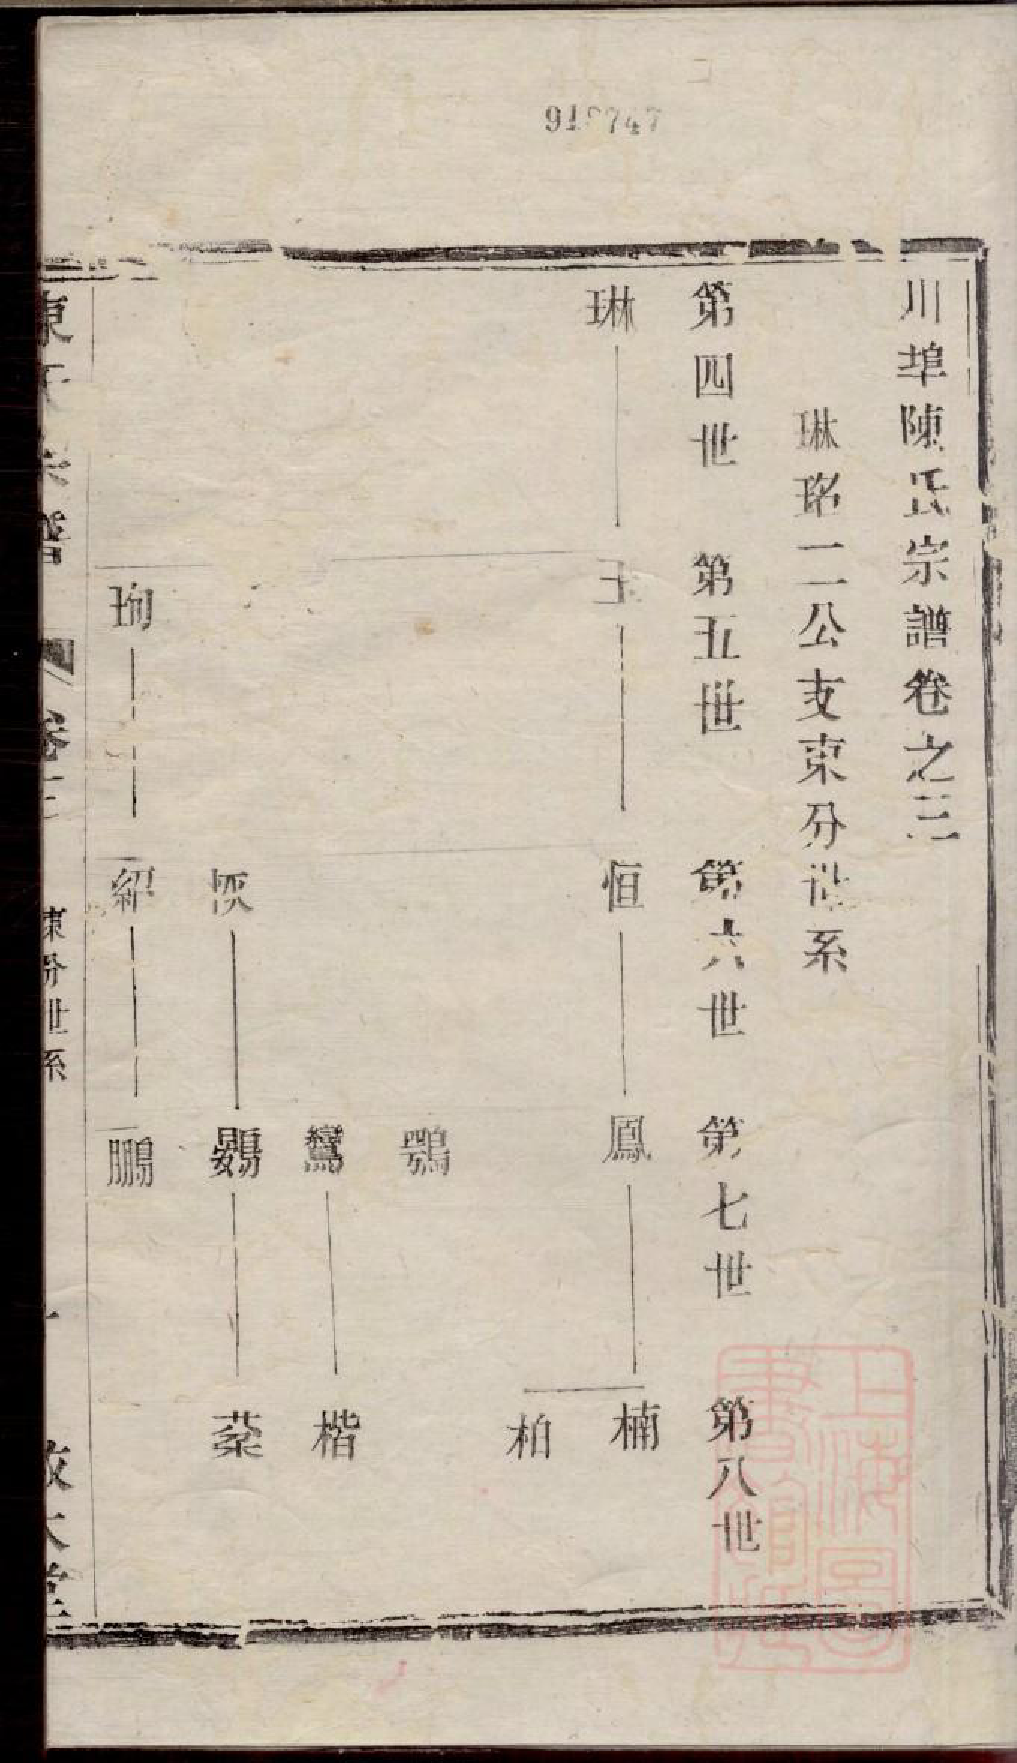 川埠陳氏宗譜卷之三
琳琊二公支東分世系
第四世 第五世 第六世 第七世 第八世
琳 玉 恒 鳳 楠
柏
鶚
鸞 楷
恢 鷃 棻
珣 紹 鵬
宗譜 卷三 東分世系 一
上海圖書館藏